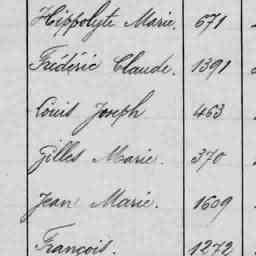 Hippolyte Marie. 671
Frédéric Claude. 1391
Louis Joseph 463
Gilles Marie. 370
Jean Marie. 1609
François. 1272